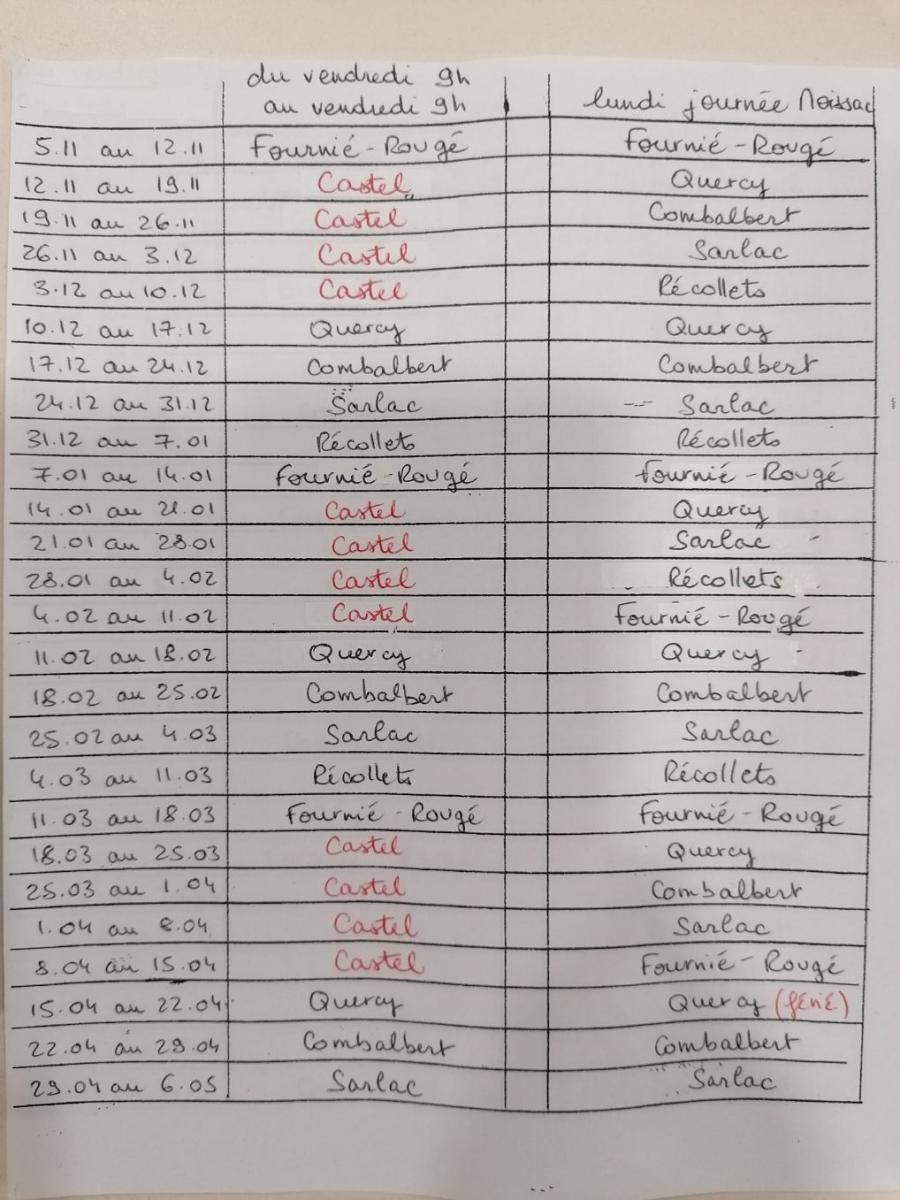 du vendredi 9h
au vendredi 9h
lundi journée Moissac
5.11 au 12.11 Fournié-Rougé Fournié-Rougé
12.11 au 19.11 Castel Quercy
19.11 au 26.11 Castel Combalbert
26.11 au 3.12 Castel Sarlac
3.12 au 10.12 Castel Récollets
10.12 au 17.12 Quercy Quercy
17.12 au 24.12 Combalbert Combalbert
24.12 au 31.12 Sarlac Sarlac
31.12 au 7.01 Récollets Récollets
7.01 au 14.01 Fournié-Rougé Fournié-Rougé
14.01 au 21.01 Castel Quercy
21.01 au 28.01 Castel Sarlac
28.01 au 4.02 Castel Récollets
4.02 au 11.02 Castel Fournié-Rougé
11.02 au 18.02 Quercy Quercy
18.02 au 25.02 Combalbert Combalbert
25.02 au 4.03 Sarlac Sarlac
4.03 au 11.03 Récollets Récollets
11.03 au 18.03 Fournié-Rougé Fournié-Rougé
18.03 au 25.03 Castel Quercy
25.03 au 1.04 Castel Combalbert
1.04 au 8.04 Castel Sarlac
8.04 au 15.04 Castel Fournié-Rougé
15.04 au 22.04 Quercy Quercy (férié)
22.04 au 29.04 Combalbert Combalbert
29.04 au 6.05 Sarlac Sarlac